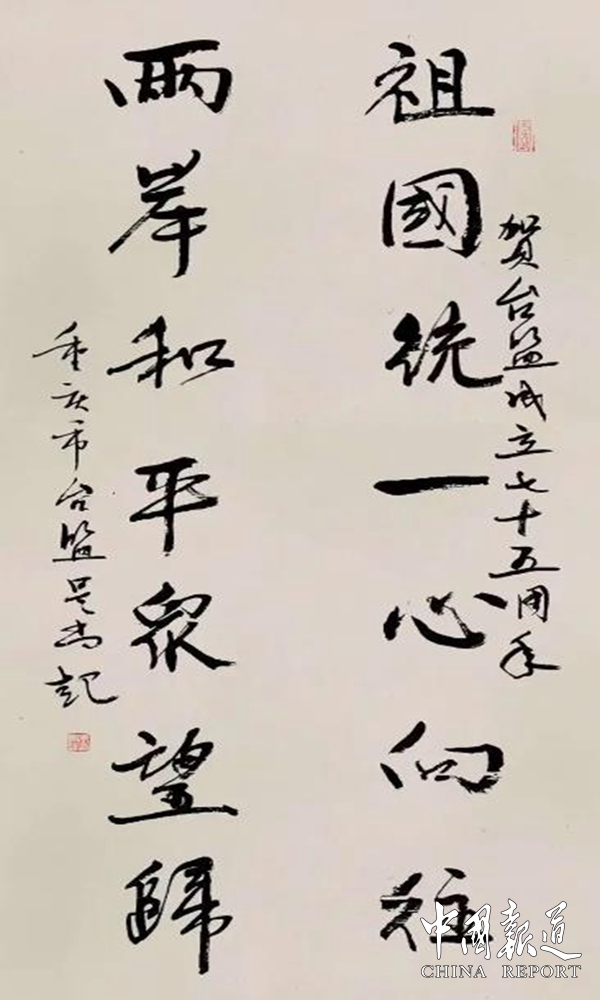 賀台盟成立七十五周年
祖國統一心向往
兩岸和平眾望歸
重庆市台盟吴尚起
中国報道
CHINA REPORT